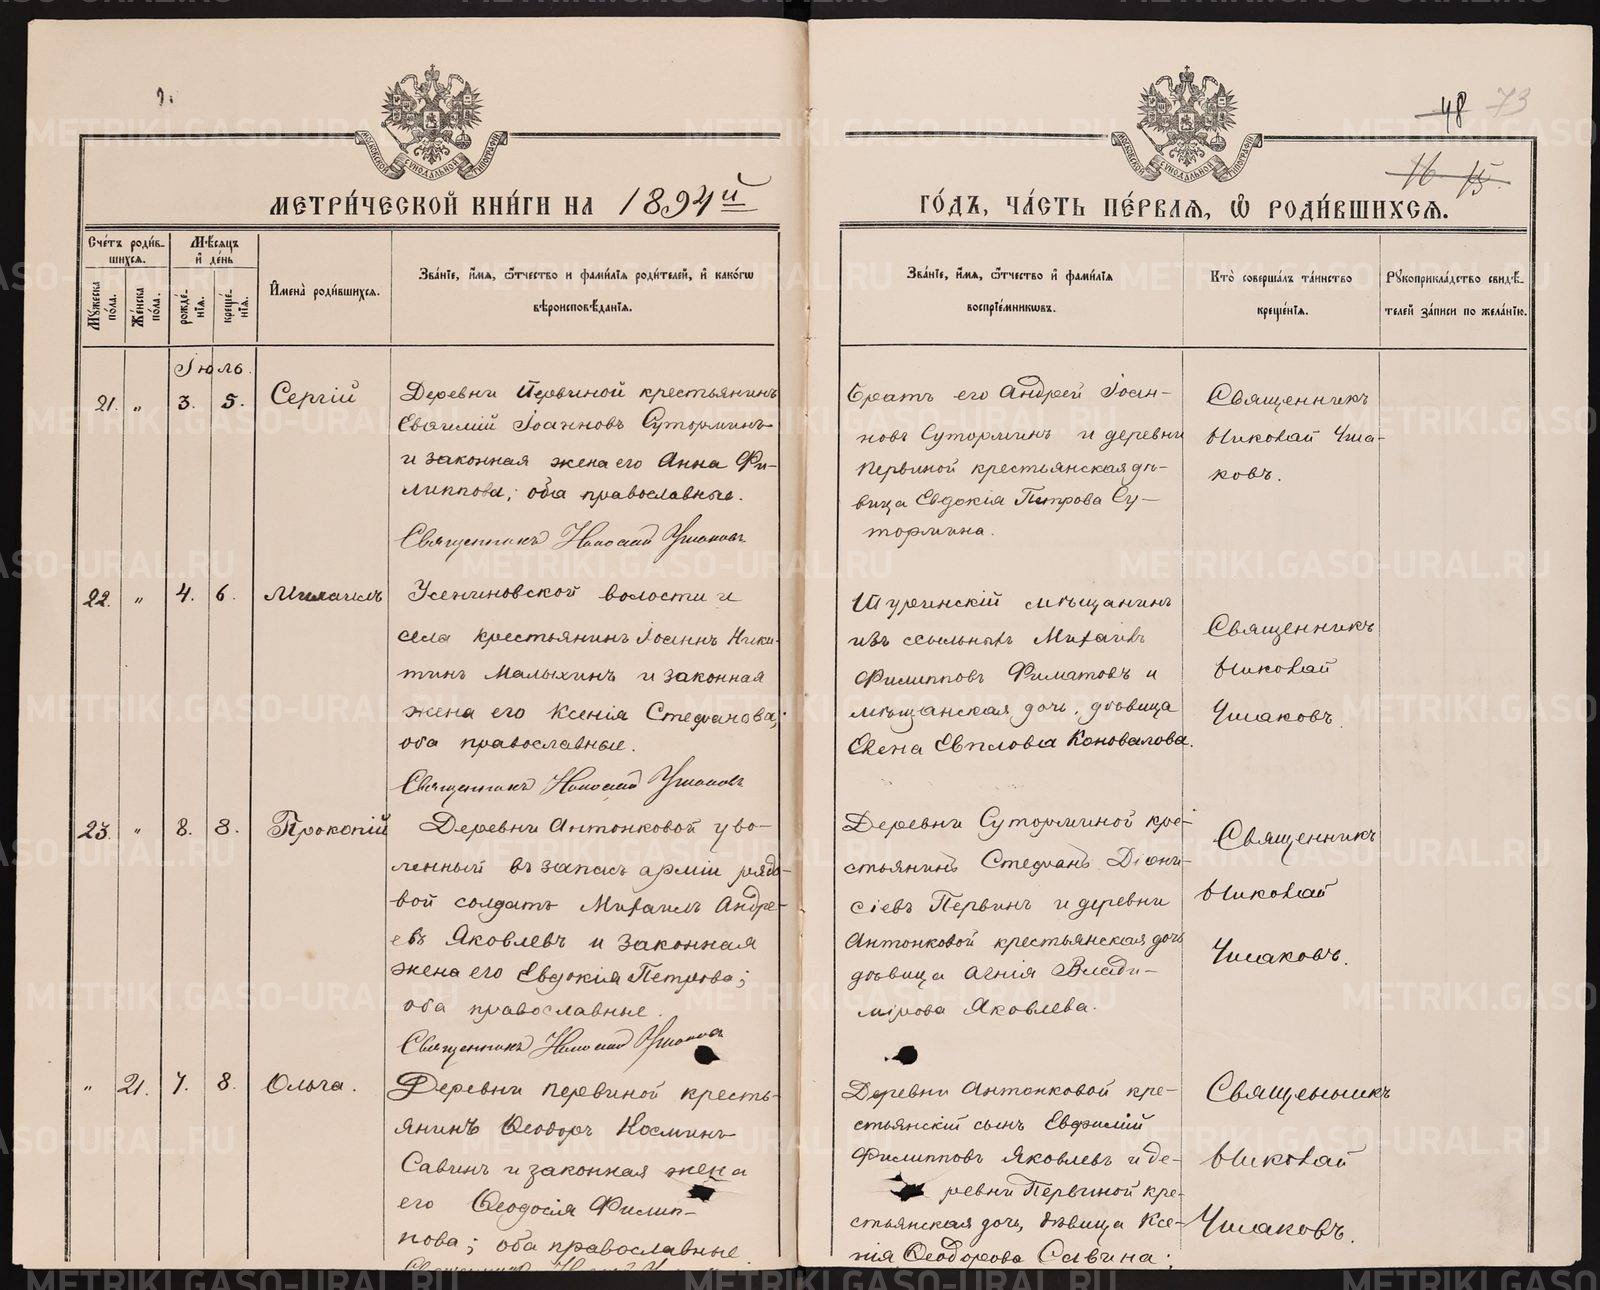 48 73
16 15
МОСКОВСКОЙ СѴНОДАЛЬНОЙ ТИПОГРАФІИ
МОСКОВСКОЙ СѴНОДАЛЬНОЙ ТИПОГРАФІИ
МЕТРИ́ЧЕСКОЙ КНИ́ГИ НА 1894й
ГО́ДЪ, ЧА́СТЬ ПЕ́РВАЯ, Ѽ РОДИ́ВШИХСЯ.
Сче́тъ роди́в-
шихся.
Мꙋ́жеска
по́ла.
Же́нска
по́ла.
Мѣ́сяцъ
и҆ де́нь
рожде́-
нїя.
креще́-
нїя.
И҆мена̀ роди́вшихся.
Зва́нїе, и҆́мя, ѻ҆́тчество и фами́лїя роди́телей, и҆ како́гѡ
вѣроисповѣ́данїя.
Зва́нїе, и҆́мя, ѻ҆́тчество и҆ фами́лїя
воспрїе́мникѡвъ.
Кто̀ соверша́лъ та́инство
креще́нїя.
Рꙋкоприкла́дство свидѣ́-
телей за́писи по жела́нїю.
Іюль.
21. „ 3. 5. Сергій
Деревни Первиной крестьянинъ
Евѳимій Іоанновъ Суторминъ
и законная жена его Анна Фи-
липпова; оба православные.
Священникъ Николай Ушаковъ
Братъ его Андрей Іоан-
новъ Суторминъ и деревни
Первиной крестьянская дѣ-
вица Евдокія Петрова Су-
тормина.
Священникъ
Николай Уша-
ковъ.
22. „ 4. 6. Михаилъ
Усениновской волости и
села крестьянинъ Іоаннъ Ники-
тинъ Малыхинъ и законная
жена его Ксенія Стефанова;
оба православные.
Священникъ Николай Ушаковъ
Туринскій мѣщанинъ
изъ ссыльныхъ Михаилъ
Филипповъ Филатовъ и
мѣщанская дочь, дѣвица
Елена Евплова Коновалова.
Священникъ
Николай
Ушаковъ.
23. „ 8. 8. Прокопій
Деревни Антонковой уво-
ленный въ запасъ арміи рядо-
вой солдатъ Михаилъ Андре-
евъ Яковлевъ и законная
жена его Евдокія Петрова;
оба православные.
Священникъ Николай Ушаковъ
Деревни Суторминой кре-
стьянинъ Стефанъ Діони-
сіевъ Первинъ и деревни
Антонковой крестьянская дочь
дѣвица Агнія Влади-
мірова Яковлева.
Священникъ
Николай
Ушаковъ.
„ 21. 7. 8. Ольга.
Деревни Первиной кресть-
янинъ Ѳеодоръ Косминъ
Савинъ и законная жена
его Ѳеодосія Филип-
пова; оба православные
Священникъ Николай
Деревни Антонковой кре-
стьянскій сынъ Евфимій
Филипповъ Яковлевъ и де-
ревни Первиной кре-
стьянская дочь, дѣвица Ксе-
нія Ѳеодорова Савина;
Священникъ
Николай
Ушаковъ.
METRIKI.GASO-URAL.RU